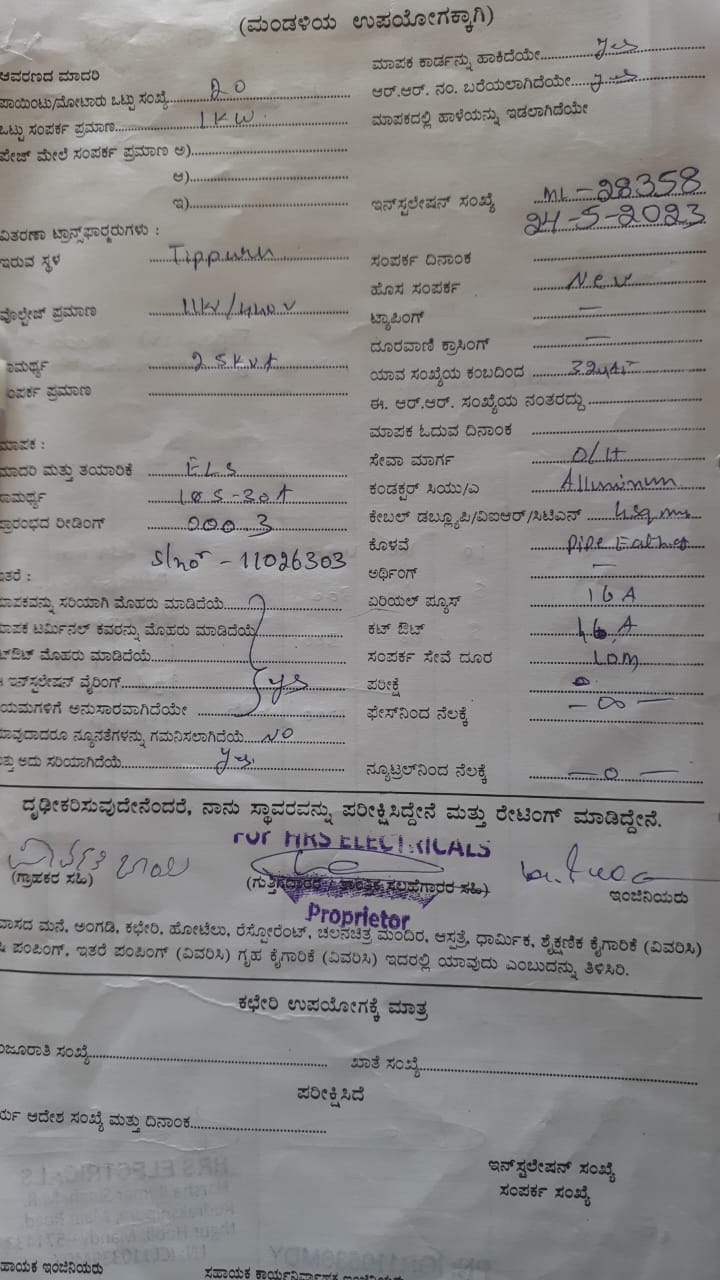 (ಮಂಡಳಿಯ ಉಪಯೋಗಕ್ಕಾಗಿ)
ಆವರಣದ ಮಾದರಿ
ಪಾಯಿಂಟು/ಮೋಟಾರು ಒಟ್ಟು ಸಂಖ್ಯೆ 20
ಒಟ್ಟು ಸಂಪರ್ಕ ಪ್ರಮಾಣ 1KW
ಪೇಜ್ ಮೇಲೆ ಸಂಪರ್ಕ ಪ್ರಮಾಣ ಅ)
ಆ)
ಇ)
ವಿತರಣಾ ಟ್ರಾನ್ಸ್‌ಫಾರ್‍ಮರುಗಳು :
ಇರುವ ಸ್ಥಳ
ವೊಲ್ಟೇಜ್ ಪ್ರಮಾಣ 11KV/440V
ಾಮರ್ಥ್ಯ 25KVA
ಂಪರ್ಕ ಪ್ರಮಾಣ
ಮಾಪಕ :
ಮಾದರಿ ಮತ್ತು ತಯಾರಿಕೆ
ಾಮರ್ಥ್ಯ
ಪ್ರಾರಂಭದ ರೀಡಿಂಗ್ 000.3
Sl no - 11026303
ಇತರೆ :
ಮಾಪಕವನ್ನು ಸರಿಯಾಗಿ ಮೊಹರು ಮಾಡಿದೆಯೆ
ಮಾಪಕ ಟರ್ಮಿನಲ್ ಕವರನ್ನು ಮೊಹರು ಮಾಡಿದೆಯೆ
ಟ್‌ಔಟ್ ಮೊಹರು ಮಾಡಿದೆಯೆ
ಇನ್‌ಸ್ಟಲೇಷನ್ ವೈರಿಂಗ್ yes
ಯಮಗಳಿಗೆ ಅನುಸಾರವಾಗಿದೆಯೇ
ಯಾವುದಾದರೂ ನ್ಯೂನತೆಗಳನ್ನು ಗಮನಿಸಲಾಗಿದೆಯೆ NO
ತ್ತು ಅದು ಸರಿಯಾಗಿದೆಯೆ yes
ಮಾಪಕ ಕಾರ್ಡನ್ನು ಹಾಕಿದೆಯೇ yes
ಆರ್.ಆರ್. ನಂ. ಬರೆಯಲಾಗಿದೆಯೇ yes
ಮಾಪಕದಲ್ಲಿ ಹಾಳೆಯನ್ನು ಇಡಲಾಗಿದೆಯೇ
ಇನ್‌ಸ್ಟಲೇಷನ್ ಸಂಖ್ಯೆ ML-28358
24-5-2023
ಸಂಪರ್ಕ ದಿನಾಂಕ
ಹೊಸ ಸಂಪರ್ಕ New
ಟ್ಯಾಪಿಂಗ್ —
ದೂರವಾಣಿ ಕ್ರಾಸಿಂಗ್ —
ಯಾವ ಸಂಖ್ಯೆಯ ಕಂಬದಿಂದ
ಈ. ಆರ್.ಆರ್. ಸಂಖ್ಯೆಯ ನಂತರದ್ದು
ಮಾಪಕ ಓದುವ ದಿನಾಂಕ
ಸೇವಾ ಮಾರ್ಗ O/H
ಕಂಡಕ್ಟರ್ ಸಿಯು/ಎ Alluminum
ಕೇಬಲ್ ಡಬ್ಲ್ಯೂಪಿ/ವಿಐಆರ್/ಸಿಟಿಎನ್ 4sqmm
ಕೊಳವೆ
ಅರ್ಥಿಂಗ್ —
ಏರಿಯಲ್ ಪ್ಯೂಸ್ 16A
ಕಟ್ ಔಟ್ 16.A
ಸಂಪರ್ಕ ಸೇವೆ ದೂರ 10m
ಪರೀಕ್ಷೆ
ಫೇಸ್‌ನಿಂದ ನೆಲಕ್ಕೆ — ∞ —
ನ್ಯೂಟ್ರಲ್‌ನಿಂದ ನೆಲಕ್ಕೆ — 0 —
ದೃಢೀಕರಿಸುವುದೇನೆಂದರೆ, ನಾನು ಸ್ಥಾವರವನ್ನು ಪರೀಕ್ಷಿಸಿದ್ದೇನೆ ಮತ್ತು ರೇಟಿಂಗ್ ಮಾಡಿದ್ದೇನೆ.
FOR HRS ELECTRICALS
(ಗ್ರಾಹಕರ ಸಹಿ)
(ಗುತ್ತಿಗೆದಾರರ / ತಾಂತ್ರಿಕ ಸಲಹೆಗಾರರ ಸಹಿ)
ಇಂಜಿನಿಯರು
Proprietor
ವಾಸದ ಮನೆ, ಅಂಗಡಿ, ಕಛೇರಿ, ಹೋಟೆಲು, ರೆಸ್ಟೋರೆಂಟ್, ಚಲನಚಿತ್ರ ಮಂದಿರ, ಆಸ್ಪತ್ರೆ, ಧಾರ್ಮಿಕ, ಶೈಕ್ಷಣಿಕ ಕೈಗಾರಿಕೆ (ವಿವರಿಸಿ)
ಪಂಪಿಂಗ್, ಇತರೆ ಪಂಪಿಂಗ್ (ವಿವರಿಸಿ) ಗೃಹ ಕೈಗಾರಿಕೆ (ವಿವರಿಸಿ) ಇದರಲ್ಲಿ ಯಾವುದು ಎಂಬುದನ್ನು ತಿಳಿಸಿರಿ.
ಕಛೇರಿ ಉಪಯೋಗಕ್ಕೆ ಮಾತ್ರ
ಂಜೂರಾತಿ ಸಂಖ್ಯೆ ಖಾತೆ ಸಂಖ್ಯೆ
ಪರೀಕ್ಷಿಸಿದೆ
ರ್ಯ ಆದೇಶ ಸಂಖ್ಯೆ ಮತ್ತು ದಿನಾಂಕ
ಇನ್‌ಸ್ಟಲೇಷನ್ ಸಂಖ್ಯೆ
ಸಂಪರ್ಕ ಸಂಖ್ಯೆ
ಹಾಯಕ ಇಂಜಿನಿಯರು ಸಹಾಯಕ ಕಾರ್ಯನಿರ್ವಾಹಕ ಇಂಜಿನಿಯರು